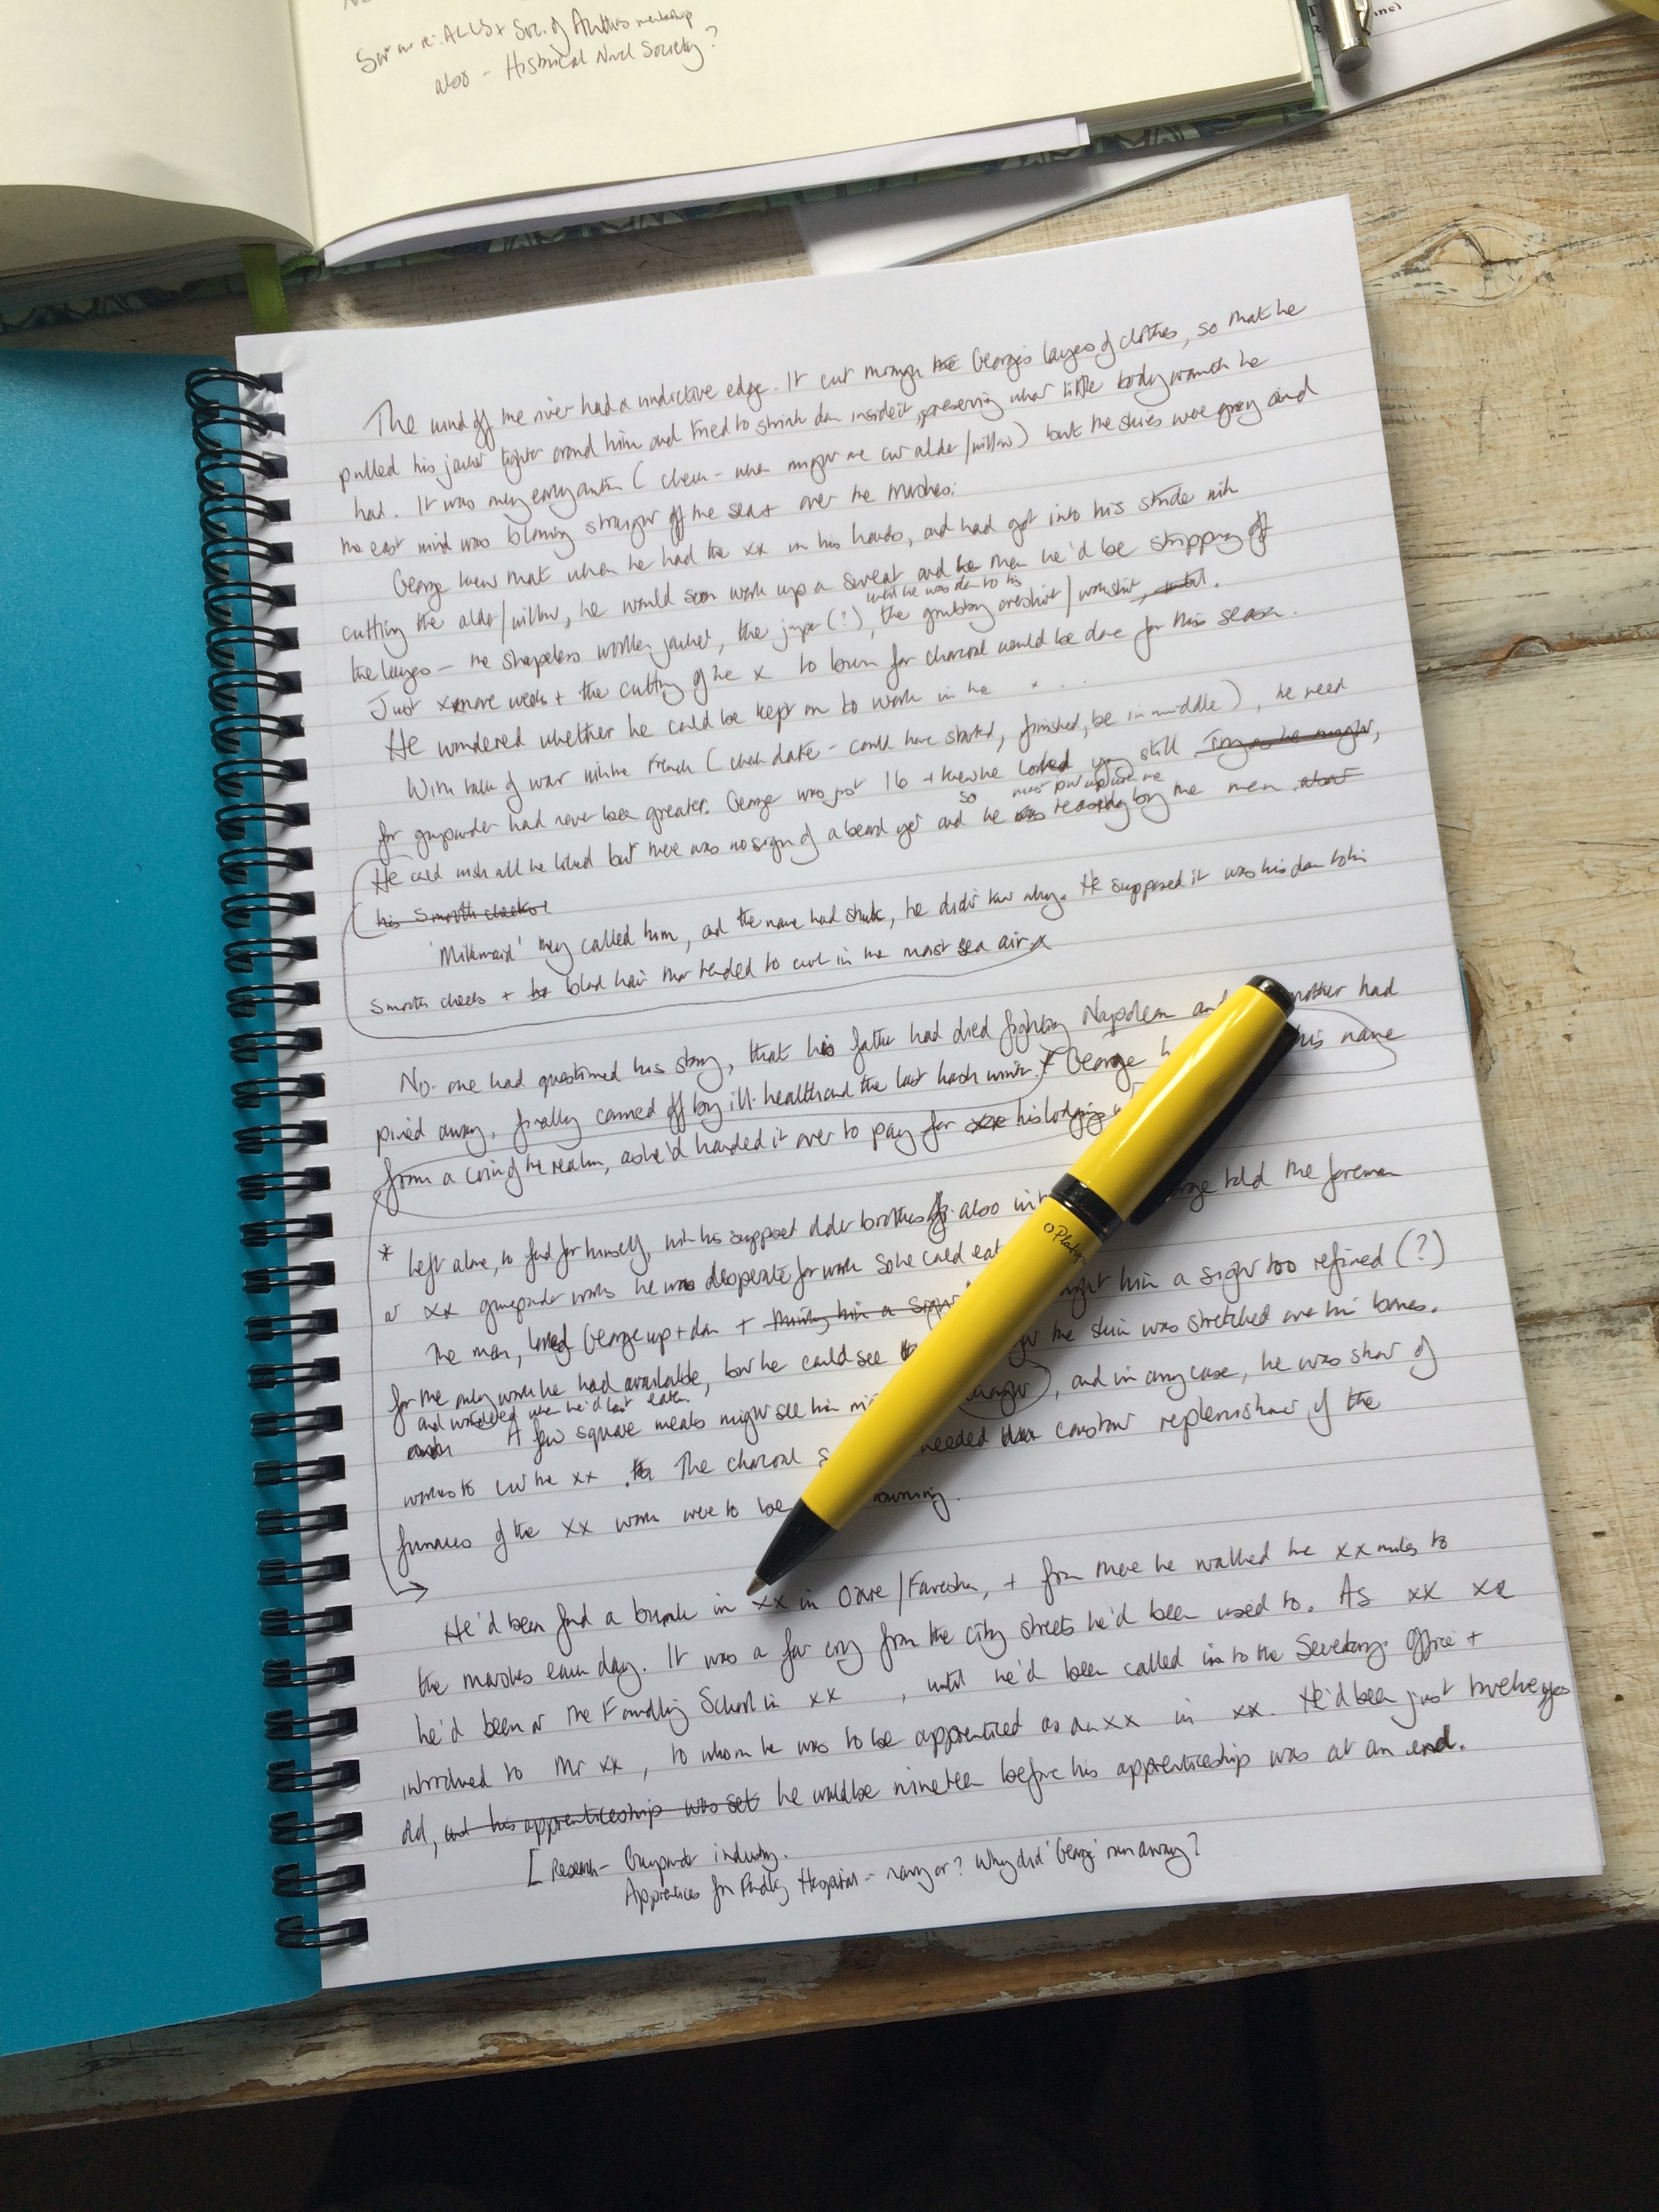 Soc. of Authors membership
also - Historical Novel Society?
The wind off the river had a vindictive edge. It cut through the George's layers of clothes, so that he
pulled his jacket tighter around him and tried to shrink down inside it, preserving what little body warmth he
had. It was only early autumn (check - when might we cut alder/willow) but the skies were grey and
the east wind was blowing straight off the sea + over the marshes.
George knew that when he had the xx in his hands, and had got into his stride with
cutting the alder/willow, he would soon work up a sweat and he then he'd be stripping off
until he was down to his
the layers - the shapeless woollen jacket, the jumper (?), the grubby overshirt/workshirt,
Just x more weeks + the cutting of the x to burn for charcoal would be done for this season.
He wondered whether he could be kept on to work in the x . . .
With talk of war with the French (check date - could have started, finished, be in middle), the need
for gunpowder had never been greater. George was just 16 + knew he looked young still. Try as he might,
so must put up with the
He could wish all he liked but there was no sign of a beard yet and he was teasing by the men about
his smooth cheeks.
'Milkmaid' they called him, and the name had stuck, he didn't know why. He supposed it was his down to his
smooth cheeks + his blond hair that tended to curl in the moist sea air. x
No-one had questioned his story, that his father had died fighting Napoleon and mother had
pined away, finally carried off by ill-health and the last harsh winter. * George his name
from a coin of the realm, as he'd handed it over to pay for xx his lodgings
* Left alone, to fend for himself, with his support older brothers also told the foreman
at xx gunpowder works he was desperate for work so he could eat
The man, looked George up + down + thinking him a sight him a sight too refined (?)
for the only work he had available, but he could see the skin was stretched over his bones.
and wondered when he'd last eaten.
A few square meals might see him and in any case, he was short of
workers to cut the xx. The charcoal needed constant replenishment if the
furnaces of the xx works were to be
He'd been found a bunk in xx in Oare/Faversham, + from there he walked the xx miles to
the marshes each day. It was a far cry from the city streets he'd been used to. As xx xx
he'd been at the Foundling School in xx, until he'd been called in to the Secretary's Office +
introduced to Mr xx, to whom he was to be apprenticed as an xx in xx. He'd been just twelve years
old, and his apprenticeship was set he would be nineteen before his apprenticeship was at an end.
[Research - Gunpowder industry.
Apprentices for Foundling Hospital - navy or? Why did 'George' run away?